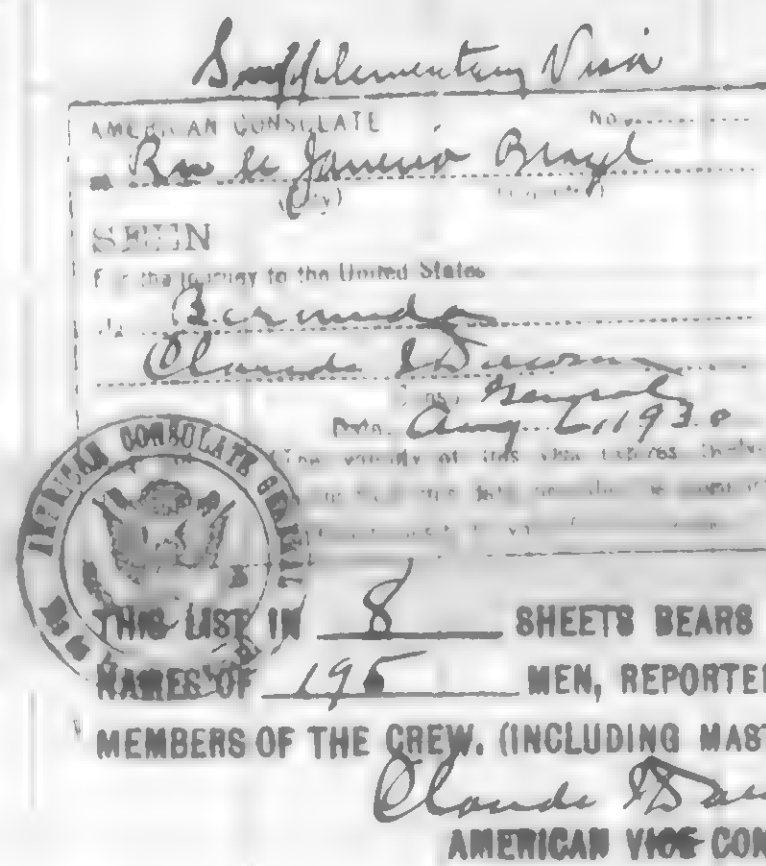 Supplementary Visa
AMERICAN CONSULATE No.
Rio de Janeiro Brazil
(City) (Country)
SEEN
For the journey to the United States
Bermuda
Claude I Dawson
General
Date. Aug 6, 1930
The validity of this visa expires
AMERICAN CONSULATE GENERAL
THIS LIST IN 8 SHEETS BEARS
NAMES OF 195 MEN, REPORTE
MEMBERS OF THE CREW. (INCLUDING MAST
Claude I Daw
AMERICAN VICE CON